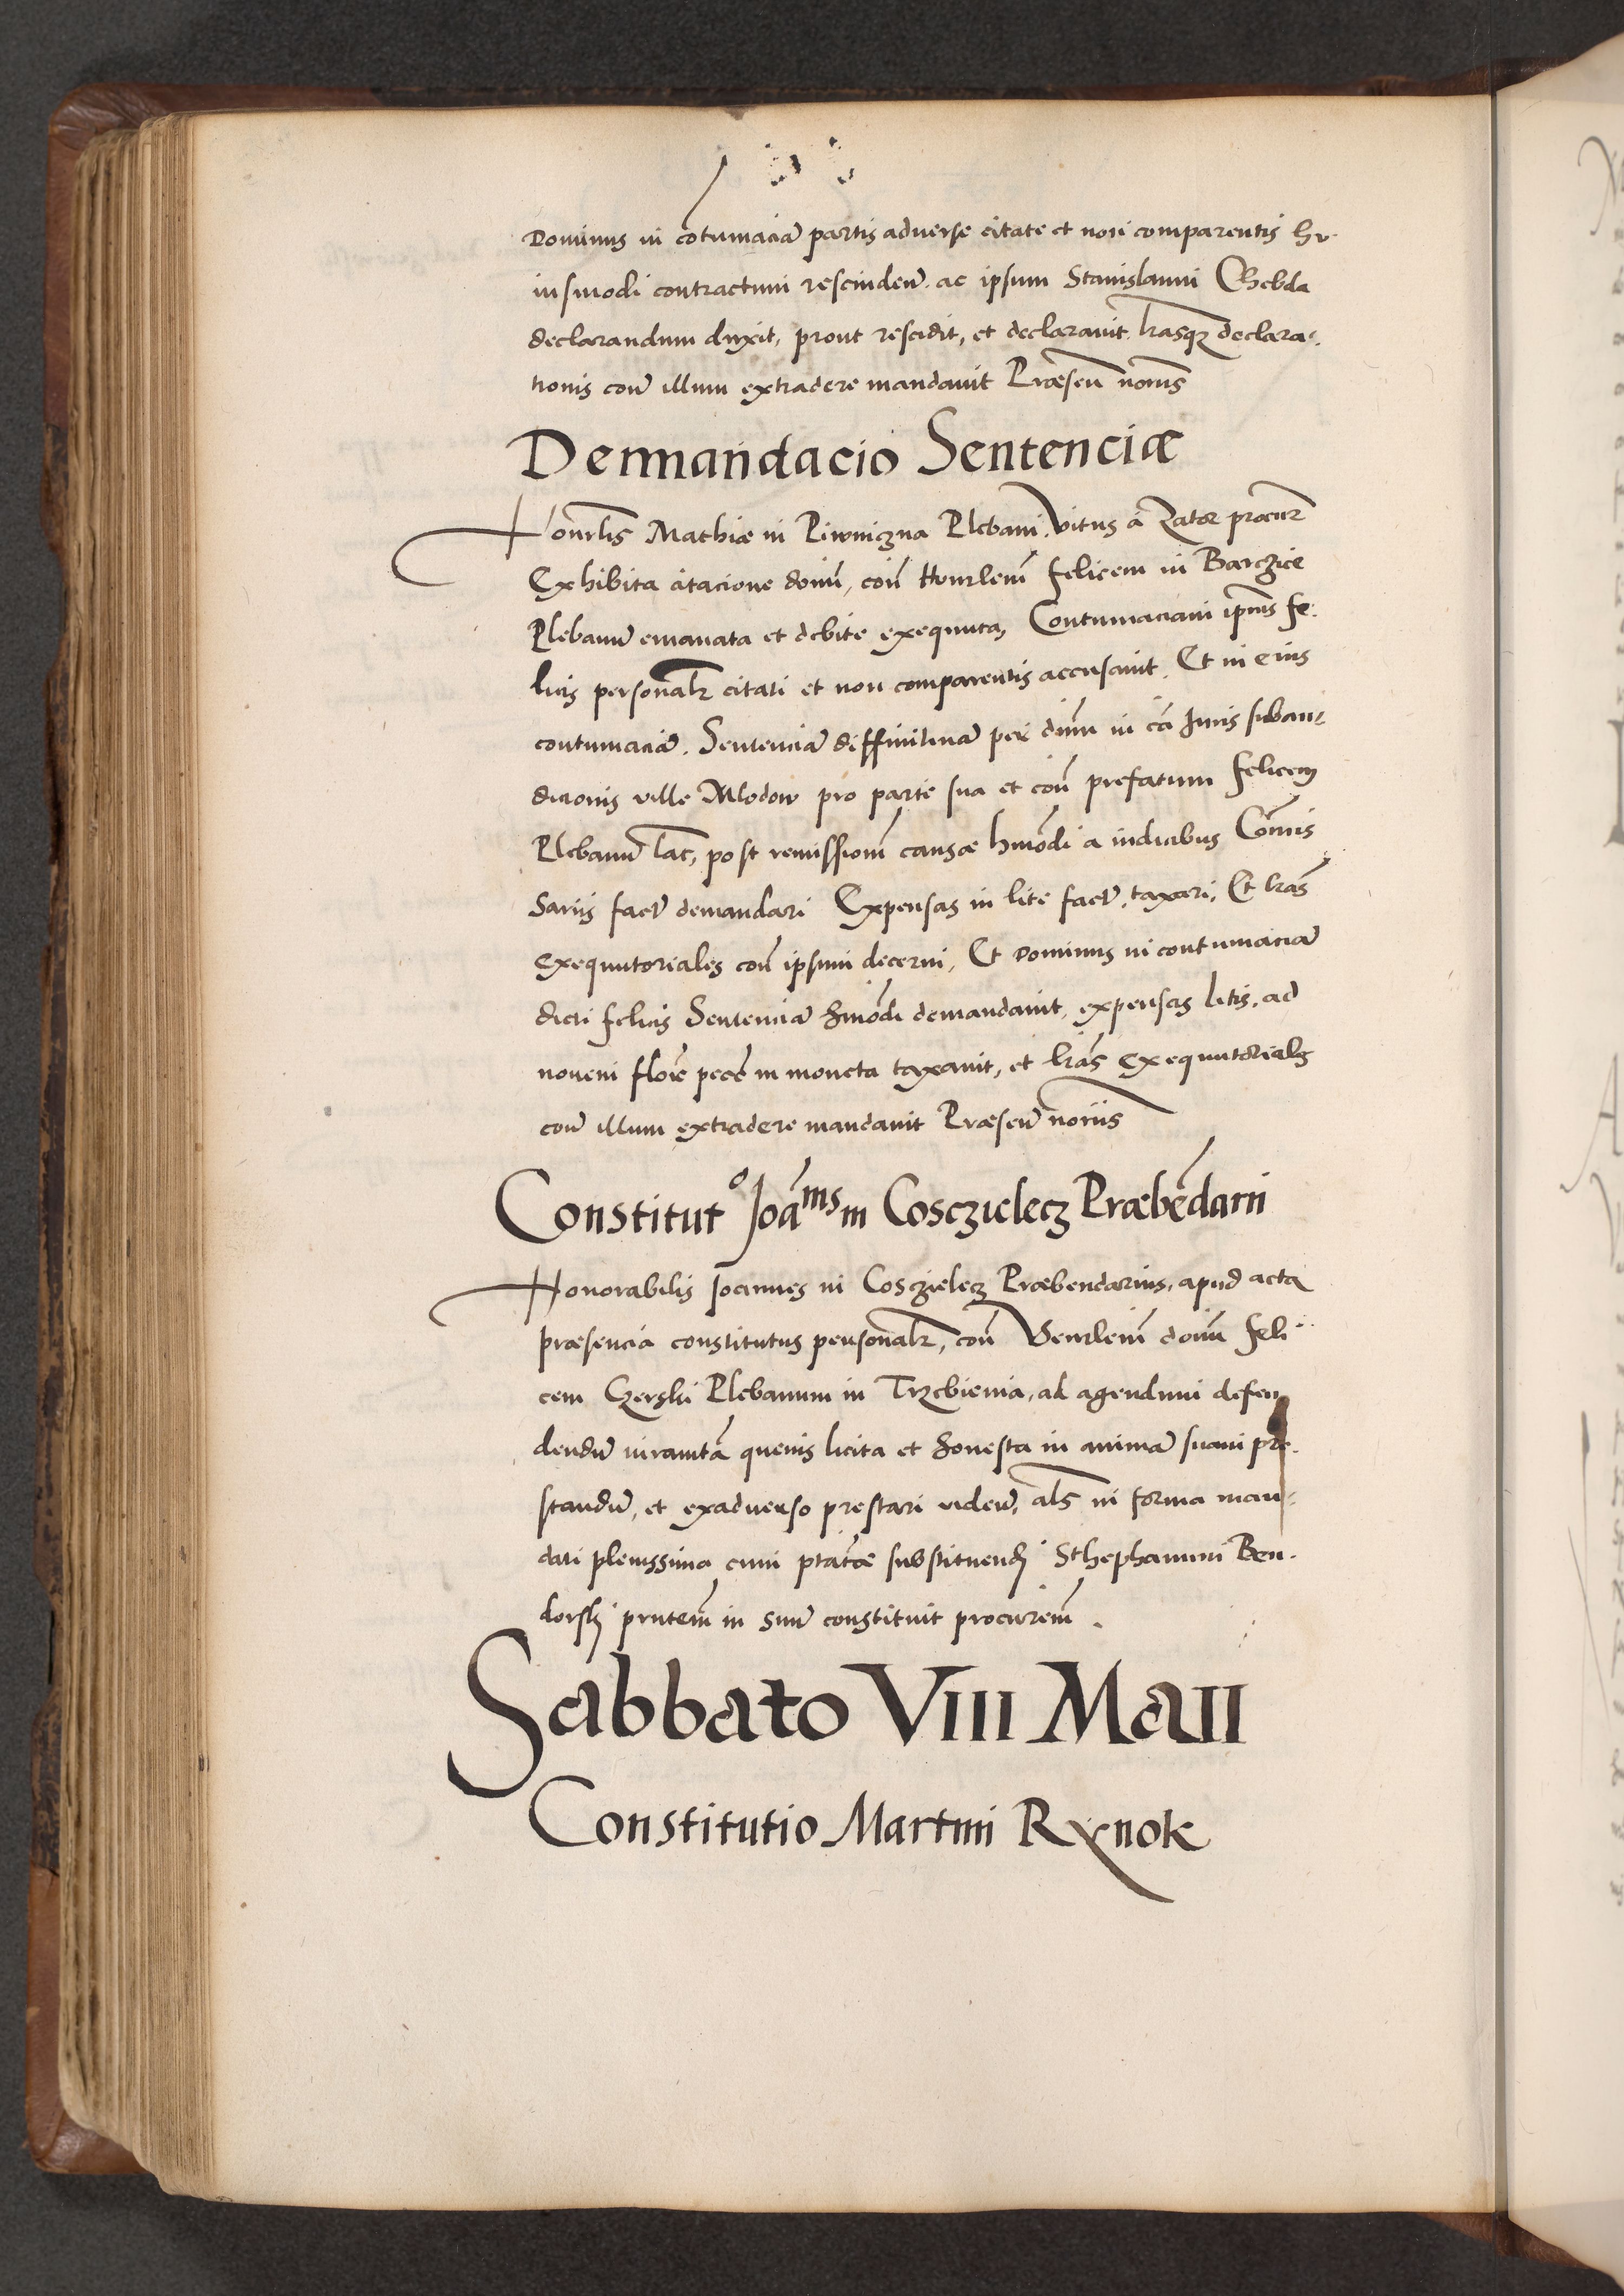 Dominus in cōtumaciā partis adverse citate et non comparentis hu-
iusmodi contractum rescindeñ. ac ipsum Stanislaum Chebda
declarandum duxit, prout rescidit, et declaravit. lrasq̃ declara-
tionis coñ illum extradere mandavit Præseñ noťiis
Demandacio Sentenciæ
Honrlis Mathiæ in Piwniczna Plebani. Vitus a Zator procuř
Exhibita citacione domī, coñ Honrlem̄ Felicem in Barczice
Plebanū emanata et debite exequuta, Contumaciam ipīus Fe-
licis personalř citati et non comparentis accusavit. Et in eius
contumaciā. Sentenciā diffinitivā per dīnm in cā Iuris subau-
ditionis ville Mlodow pro parte sua et coñ prefatum Felicem
Plebanū lat̄, post remissionē causæ hmōdi a iudicibus Com̄is
sariis fact̄ demandari Expensas in lite fact̄, taxari, Et lrās
exequutoriales coñ ipsum decerni, Et Dominus in contumaciā
dicti Felicis Sentenciā hmōdi demandavit, expensas litis, ad
novem floř pecc̄ in moneta taxavit, et lrās exequutoriales
coñ illum extradere mandavit Præseñ noťiis
Constitut° Joānis in Cosczielecz Præbēdarii
Honorabilis Joannes in Cosczielecz Præbendarius, apud acta
præsencia constitutus personalř, coñ Venrlem̄ domī Feli-
cem Czerski Plebanum in Trzebienia, ad agendum defen
dendū iuramtā quevis licita et honesta in animā suam pre-
standū, et exadverso prestari videñ, als̄ in forma man-
dati plenissima cum ptāte substituendj Sthephanum Ben-
dorskj pnteṁ in suū constituit procurem̄.
Sabbato VIII Maii
Constitutio Martini Rynok